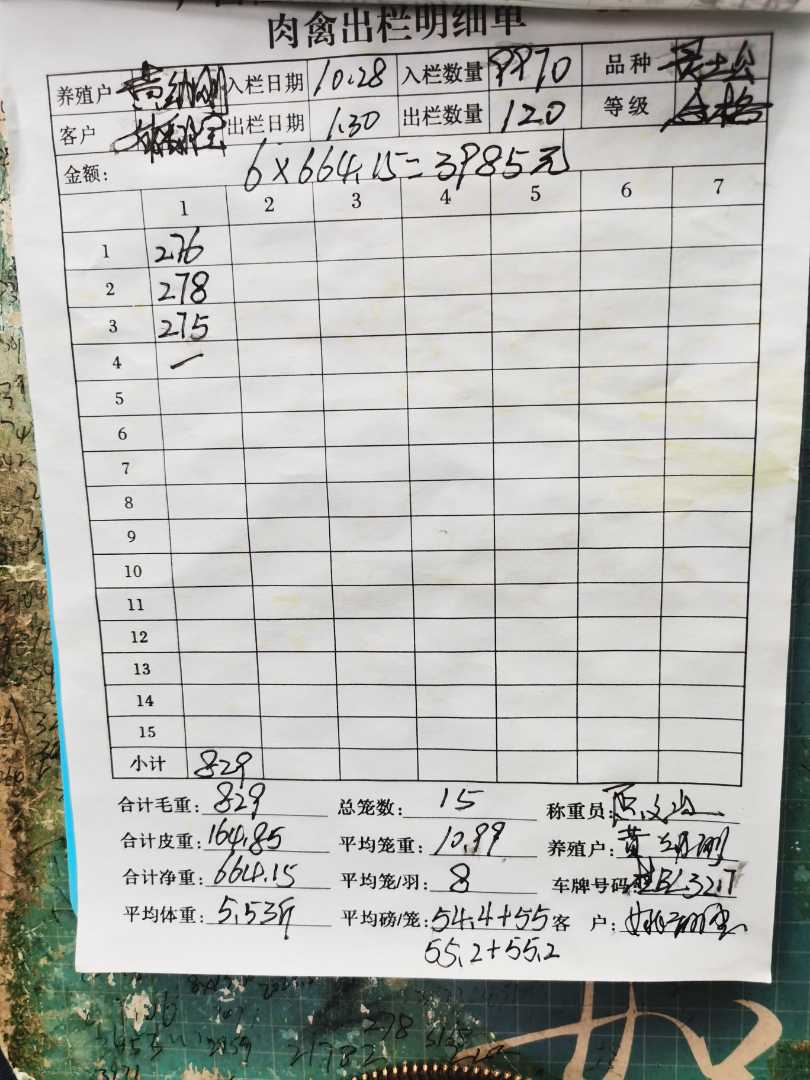 肉禽出栏明细单
养殖户 入栏日期 10.28 入栏数量 9970 品种
客户 出栏日期 1.30 出栏数量 120 等级 合格
金额: 6×664.15=3985元
1 2 3 4 5 6 7
1 276
2 278
3 275
4 一
5
6
7
8
9
10
11
12
13
14
15
小计 829
合计毛重: 829 总笼数: 15 称重员:
合计皮重: 164.85 平均笼重: 10.99 养殖户: 黄
合计净重: 664.15 平均笼/羽: 8 车牌号码:
平均体重: 5.53斤 平均磅/笼: 54.4+55 客 户:
55.2+55.2